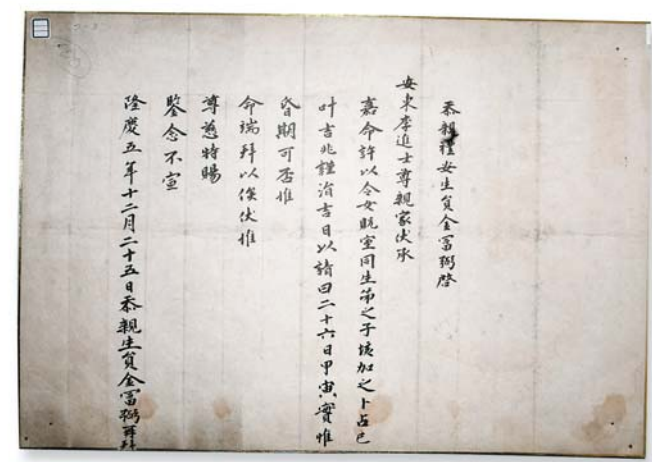 忝親禮安生員金富弼啓
安東李進士尊親家伏承
嘉命許以令女貺室同生弟之子垓加之卜占已
叶吉兆謹涓吉日以請曰二十六日甲寅實惟
昏期可否惟
命端拜以俟伏惟
尊慈特賜
鑒念不宣
隆慶五年十二月二十五日忝親生員金富弼再拜